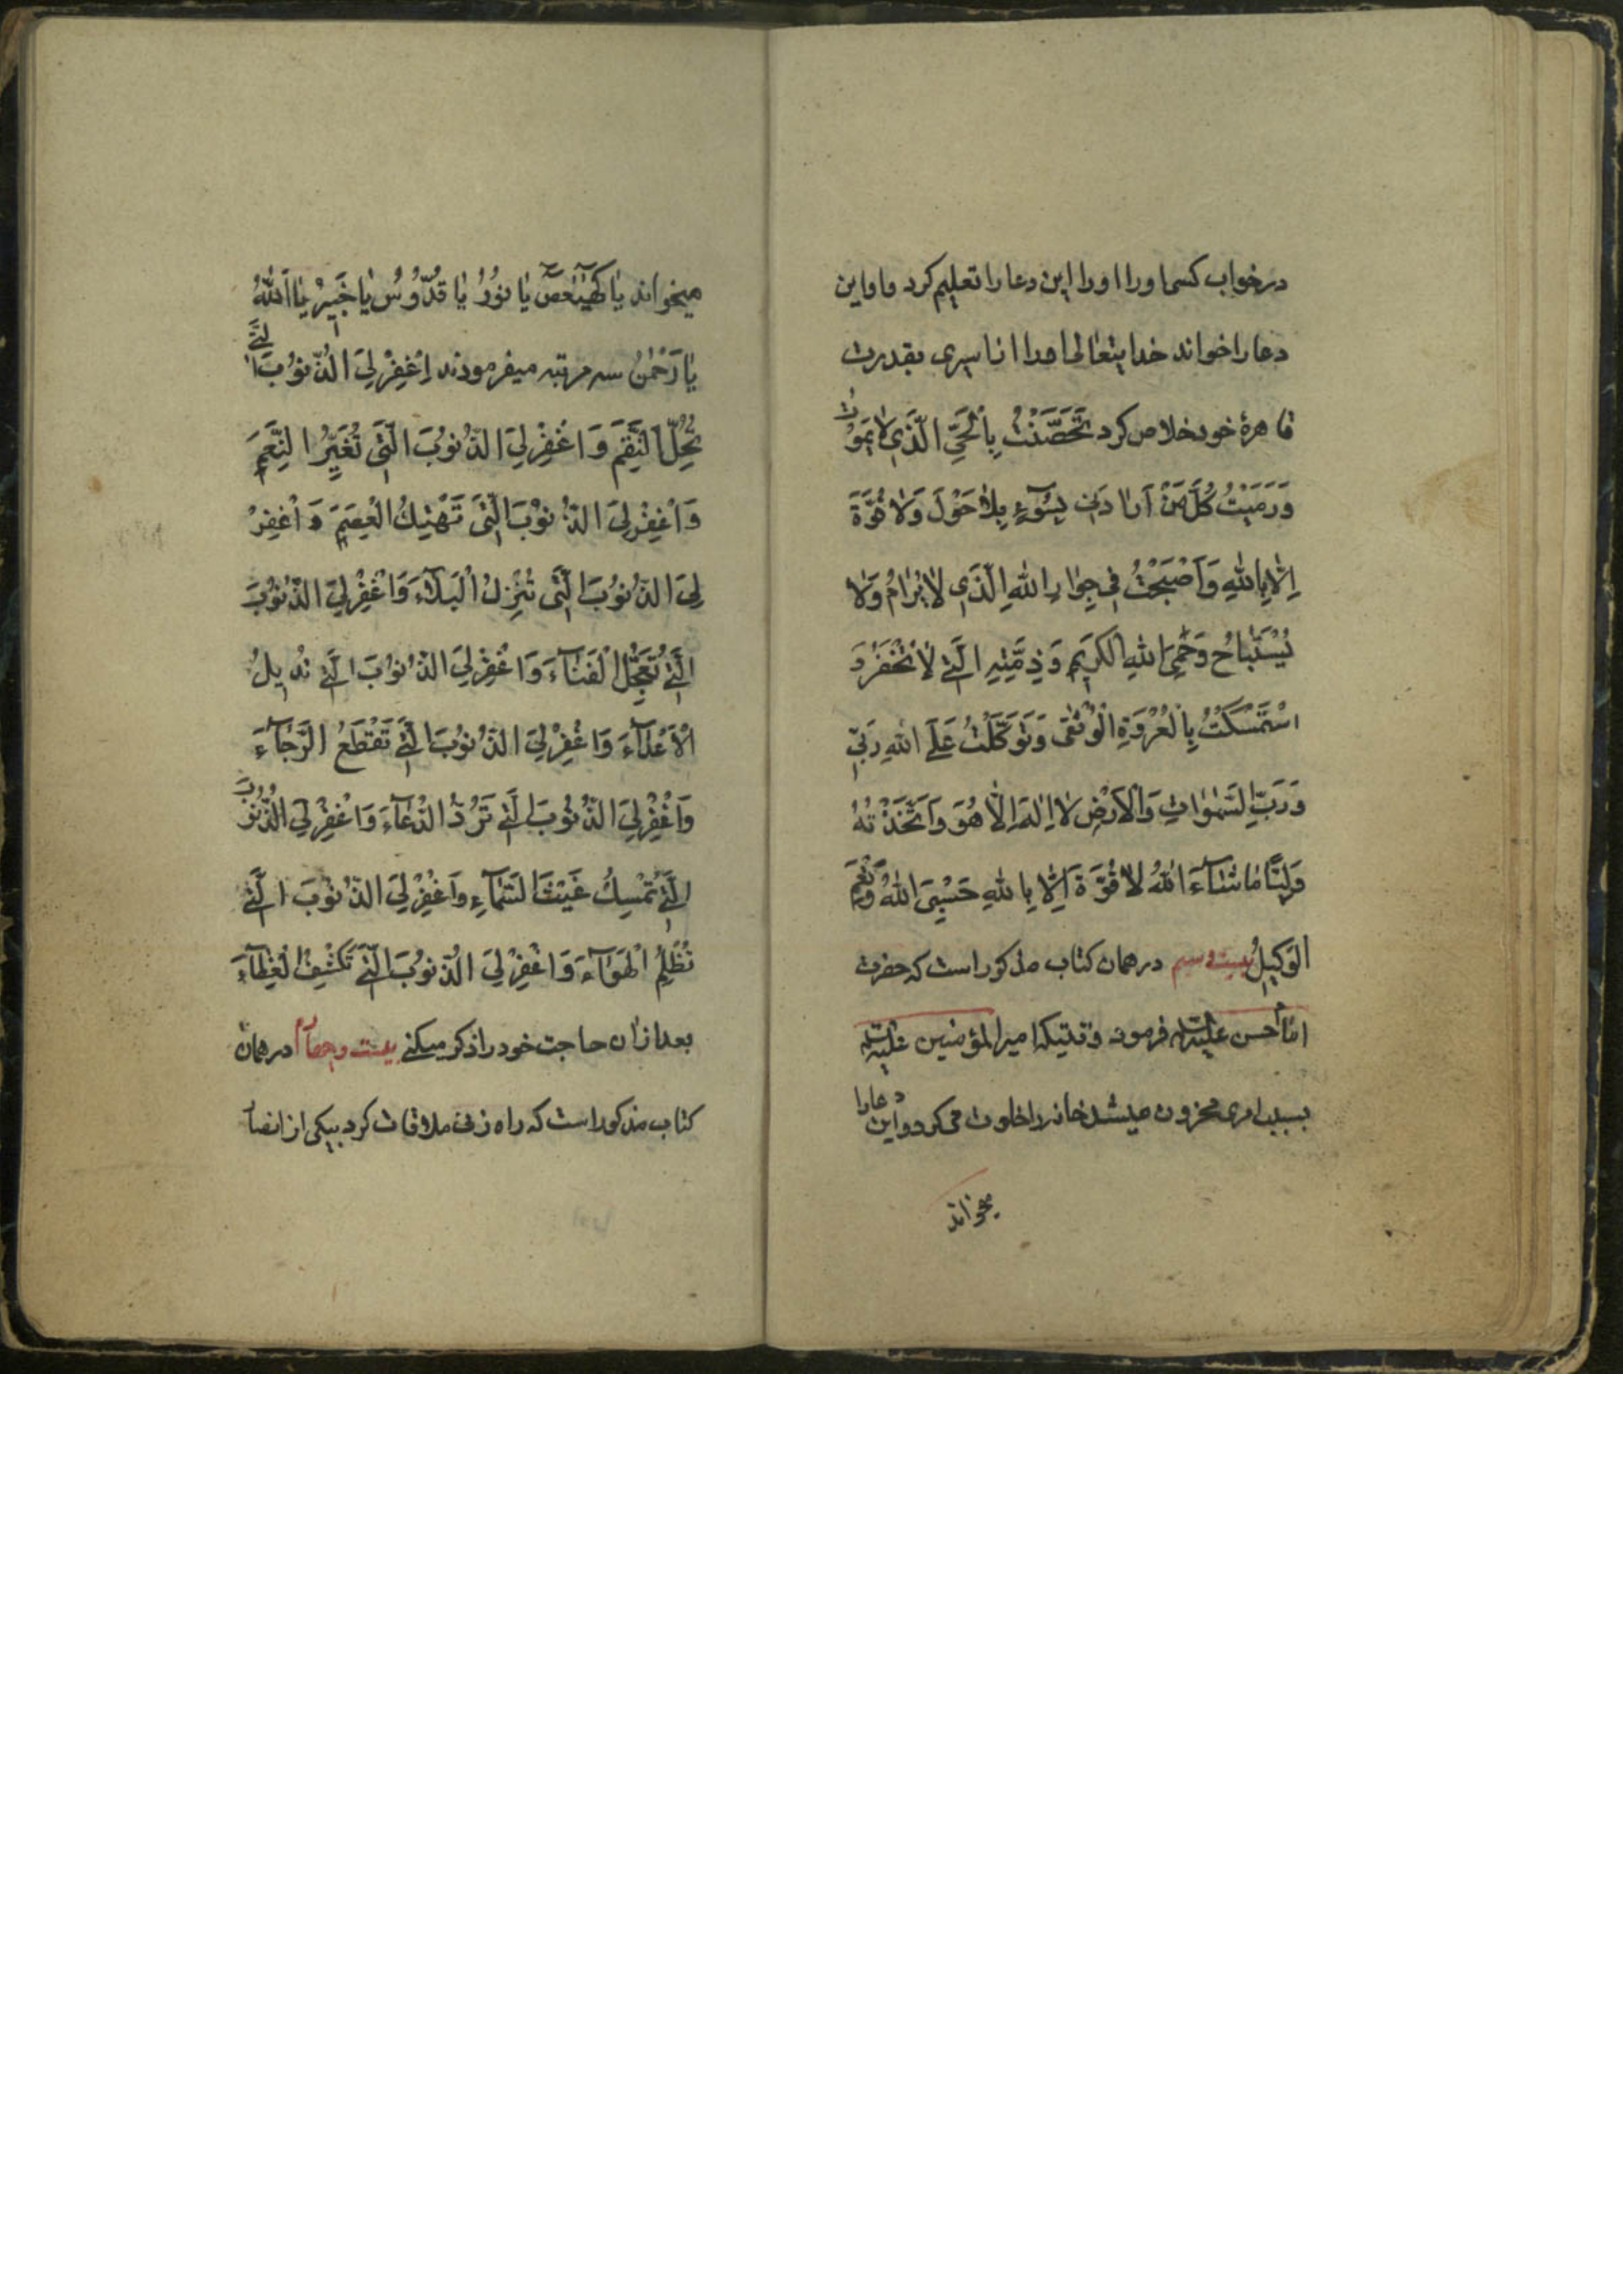 در خواب کسی او را او را این دعا را تعلیم کرد و او این
دعا را خواند خدایتعالی او را از اسیری بقدرت
قاهرهٔ خود خلاص کرد تَحَصَّنْتُ بِالْحَيِّ الَّذِي لَا يَمُوتُ
وَرَمَيْتُ كُلَّ مَنْ اَرَادَنِي بِسُوۤءٍ بِلَا حَوْلَ وَلَا قُوَّةَ
اِلَّا بِاللّٰهِ وَاَصْبَحْتُ فِي جِوَارِ اللّٰهِ الَّذِي لَا يُرَامُ وَلَا
يُسْتَبَاحُ وَحِمَى اللّٰهِ الْكَرِيمِ وَذِمَّتِهِ الَّتِي لَا تُخْفَرُ وَ
اسْتَمْسَكْتُ بِالْعُرْوَةِ الْوُثْقَى وَتَوَكَّلْتُ عَلَى اللّٰهِ رَبِّي
وَرَبِّ السَّمٰوَاتِ وَالْاَرْضِ لَا اِلٰهَ اِلَّا هُوَ وَاتَّخَذْتُهُ
وَلِيًّا مَا شَاۤءَ اللّٰهُ لَا قُوَّةَ اِلَّا بِاللّٰهِ حَسْبِيَ اللّٰهُ وَنِعْمَ
الْوَكِيلُ بیست و سیم در همان کتاب مذکور است که حضرت
امام حسن علیه السلام فرمود وقتیکه امیر المؤمنین علیه السلام
بسبب امری محزون میشد خانه را خلوت می کرد و این دعا را
میخواند
میخواند يَا كۤهٰيٰعۤصۤ يَا نُورُ يَا قُدُّوسُ يَا خَبِيرُ يَا اَللّٰهُ
يَا رَحْمٰنُ سه مرتبه میفرمودند اِغْفِرْ لِيَ الذُّنُوبَ الَّتِي
تُحِلُّ النِّقَمَ وَاغْفِرْ لِيَ الذُّنُوبَ الَّتِي تُغَيِّرُ النِّعَمَ
وَاغْفِرْ لِيَ الذُّنُوبَ الَّتِي تَهْتِكُ الْعِصَمَ وَاغْفِرْ
لِيَ الذُّنُوبَ الَّتِي تُنْزِلُ الْبَلَاۤءَ وَاغْفِرْ لِيَ الذُّنُوبَ
الَّتِي تُعَجِّلُ الْفَنَاۤءَ وَاغْفِرْ لِيَ الذُّنُوبَ الَّتِي تُدِيلُ
الْاَعْدَاۤءَ وَاغْفِرْ لِيَ الذُّنُوبَ الَّتِي تَقْطَعُ الرَّجَاۤءَ
وَاغْفِرْ لِيَ الذُّنُوبَ الَّتِي تَرُدُّ الدُّعَاۤءَ وَاغْفِرْ لِيَ الذُّنُوبَ
الَّتِي تُمْسِكُ غَيْثَ السَّمَاۤءِ وَاغْفِرْ لِيَ الذُّنُوبَ الَّتِي
تُظْلِمُ الْهَوَاۤءَ وَاغْفِرْ لِيَ الذُّنُوبَ الَّتِي تَكْشِفُ الْغِطَاۤءَ
بعد ازان حاجت خود را ذکر میکنی بیست و چهارم در همان
کتاب مذکور است که راه زنی ملاقات کرد بیکی از انصار